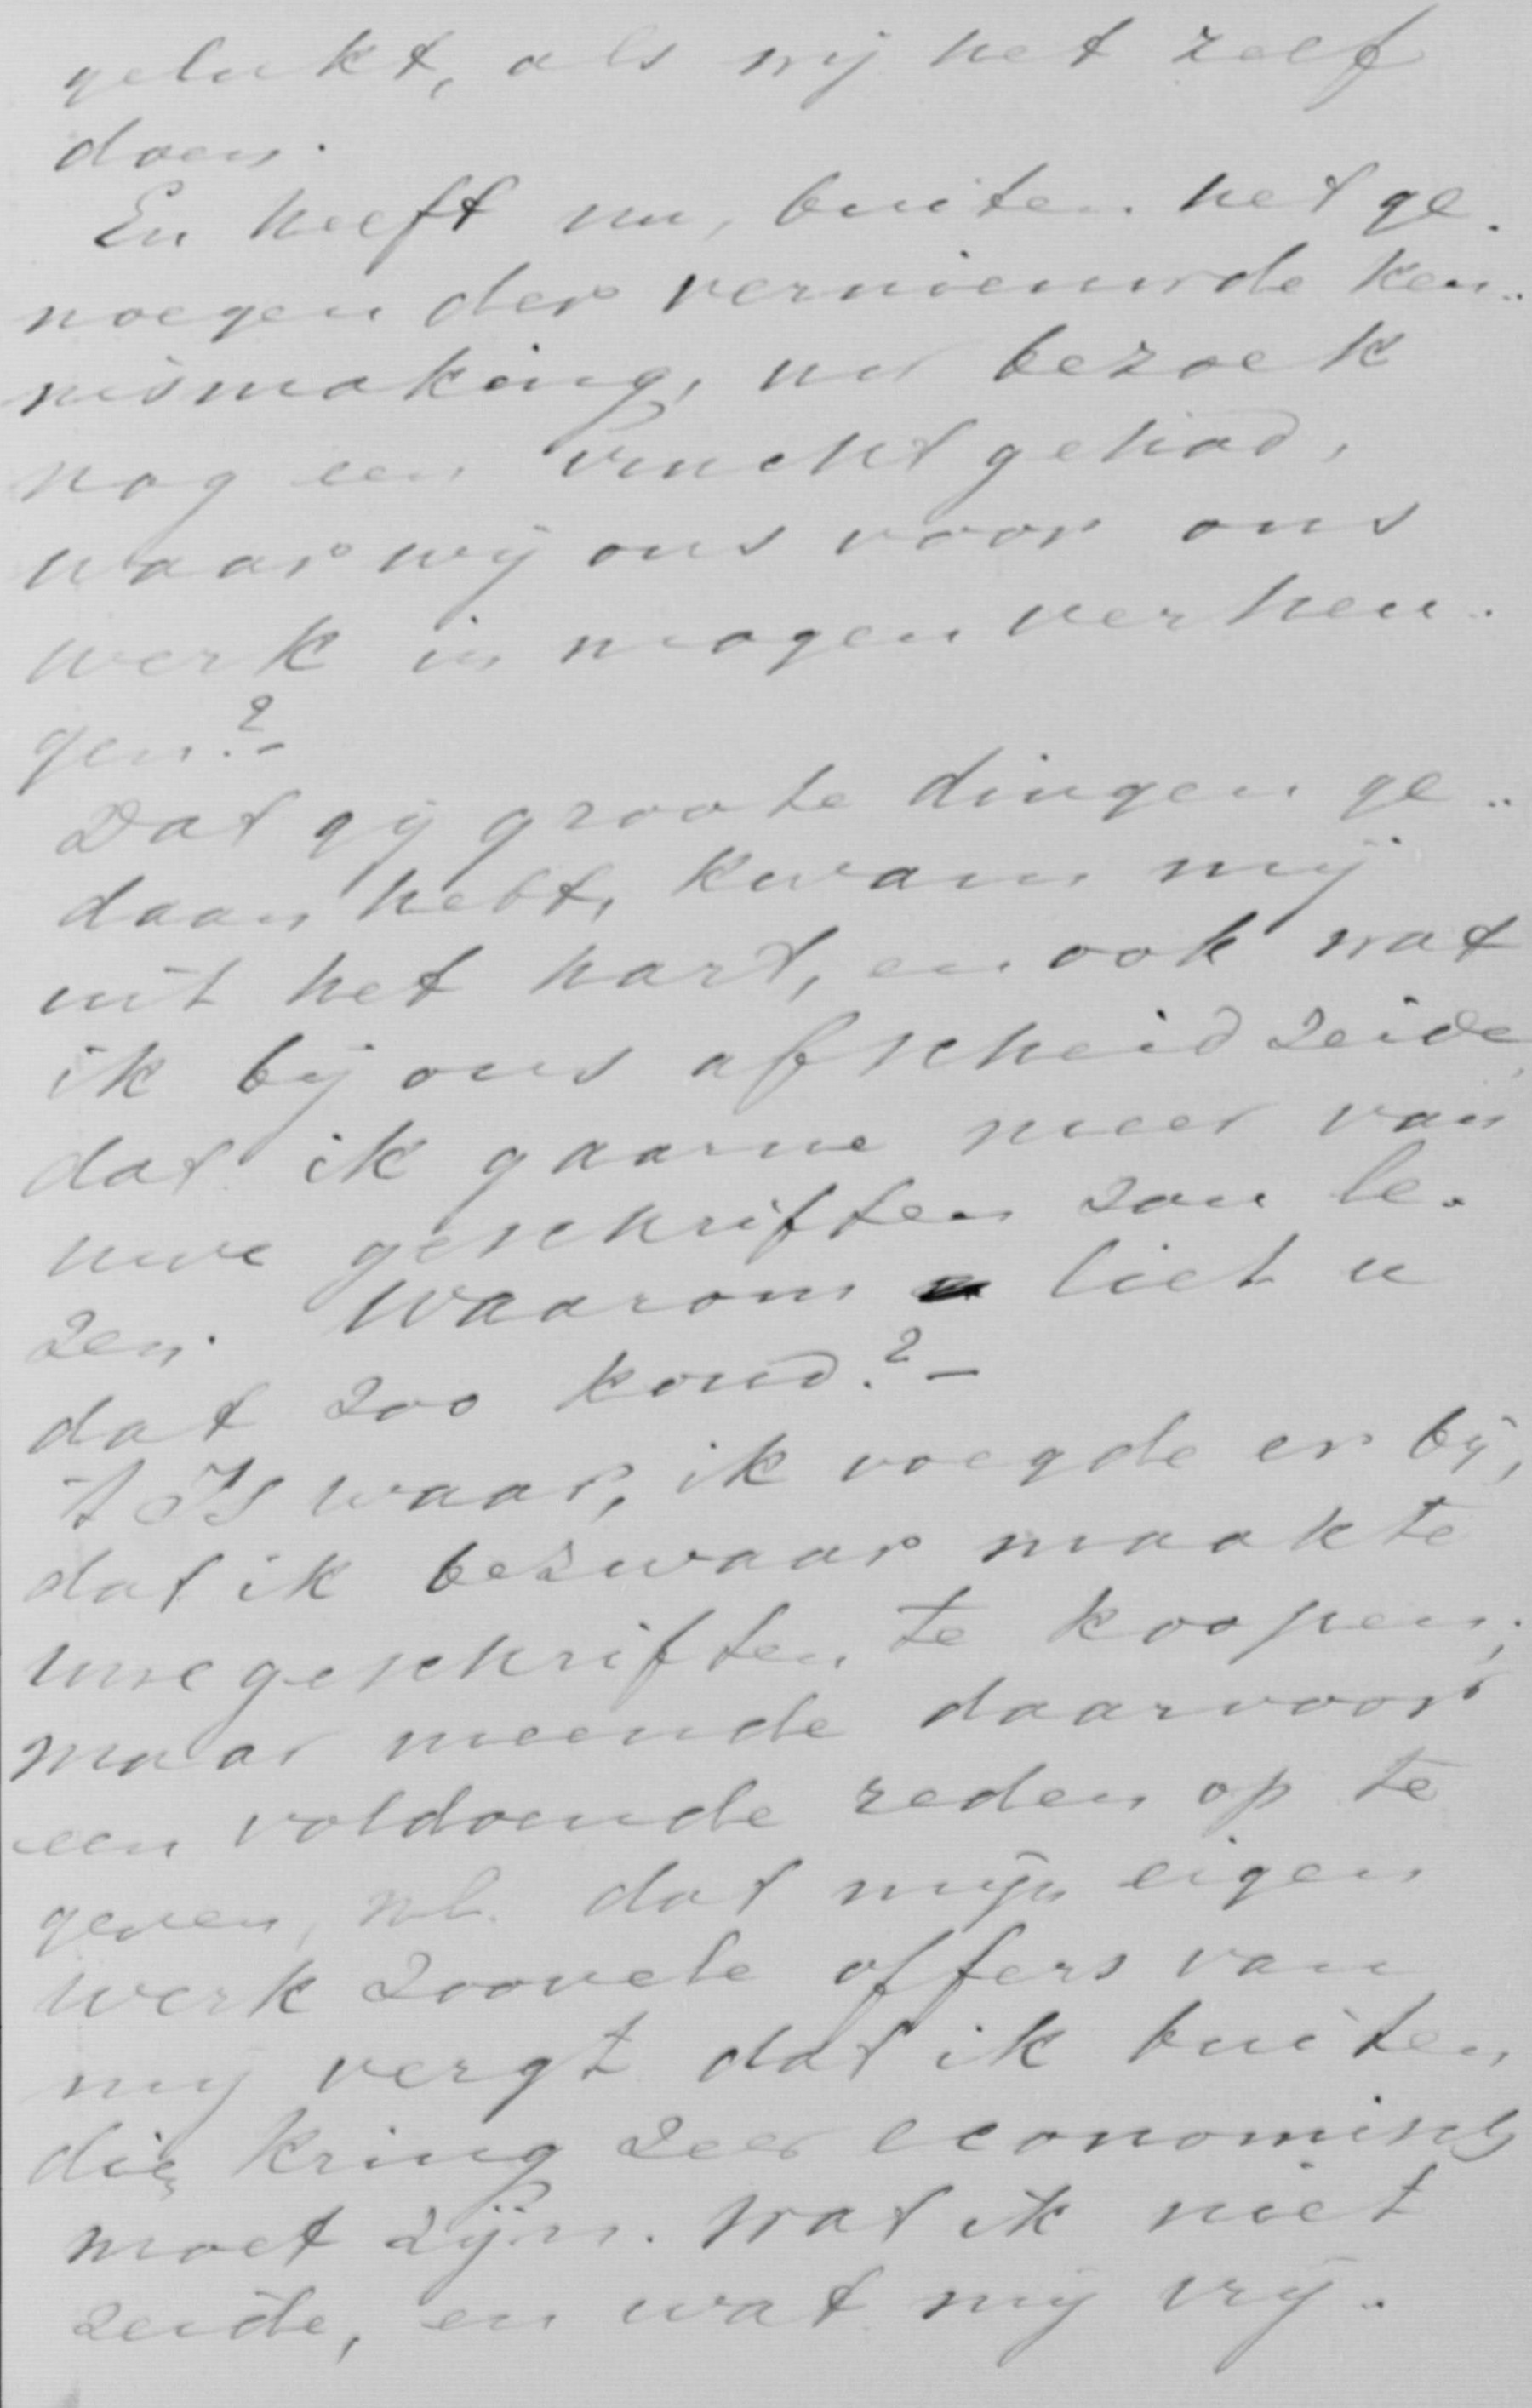 gelukt, als wij het zelf
doen.
En heeft nu, buiten het ge-
noegen der vernieuwde ken-
nismaking, uw bezoek
nog een vrucht gehad,
waar wij ons voor ons
werk in mogen verheu-
gen? -
Dat gij groote dingen ge-
daan hebt, kwam mij
uit het hart, en ook wat
ik bij ons afscheid zeide,
dat ik gaarne meer van
uwe geschriften zou le-
zen. Waarom liet u
dat zoo koud? -
't Is waar, ik voegde er bij,
dat ik bezwaar maakte
uwe geschriften te koopen;
maar meende daarvoor
een voldoende reden op te
geven, nl. dat mijn eigen
werk zoovele offers van
mij vergt dat ik buiten
die kring zeer economisch
moet zijn. Wat ik niet
zeide, en wat mij vrij-